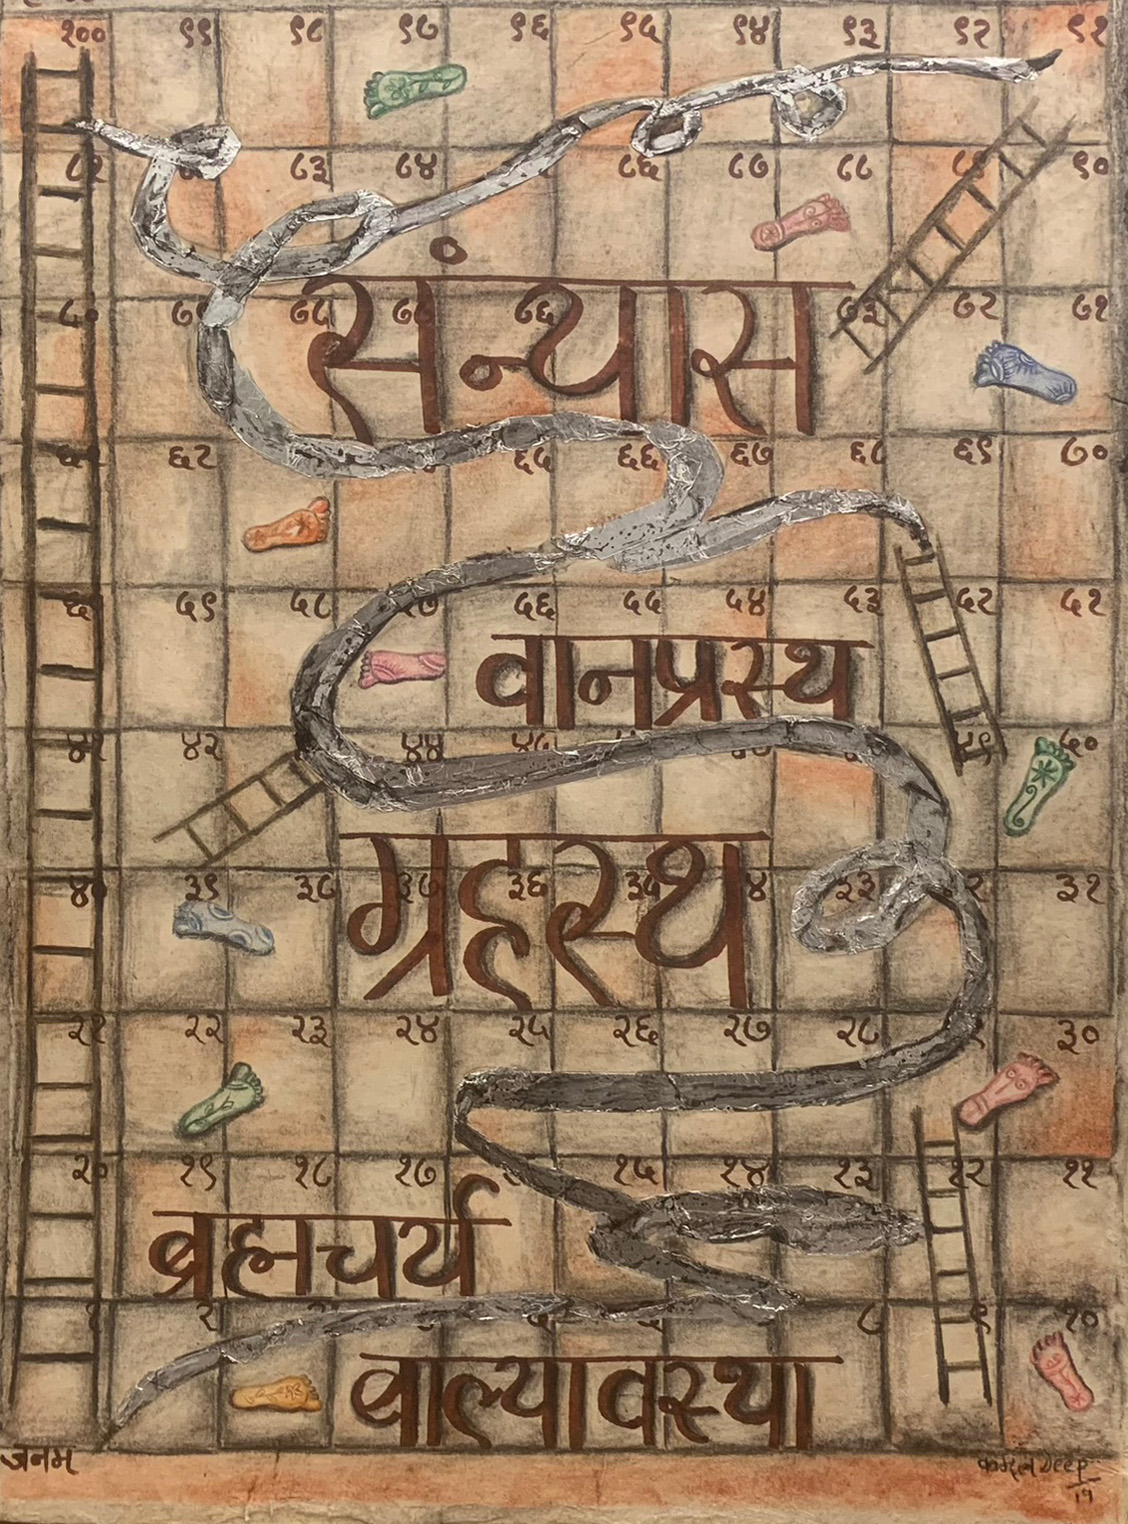 १०० ९९ ९८ ९७ ९६ ९५ ९४ ९३ ९२ ९१
८३ ८४ ८६ ८७ ८८ ८९ ९०
संन्यास
८० ७८ ७६ ७३ ७२ ७१
६२ ६५ ६६ ६७ ६८ ६९ ७०
५९ ५८ ५६ ५५ ५४ ५३ ५२ ५१
वानप्रस्थ
४१ ४२ ४४ ४५ ४९ ५०
ग्रहस्थ
४० ३९ ३८ ३७ ३६ ३५ ३३ ३१
२१ २२ २३ २४ २५ २६ २७ २८ ३०
२० १९ १८ १७ १५ १४ १३ १२ ११
ब्रह्मचर्य
२ ८ ९ १०
बाल्यावस्था
जनम
कमल Deep
19